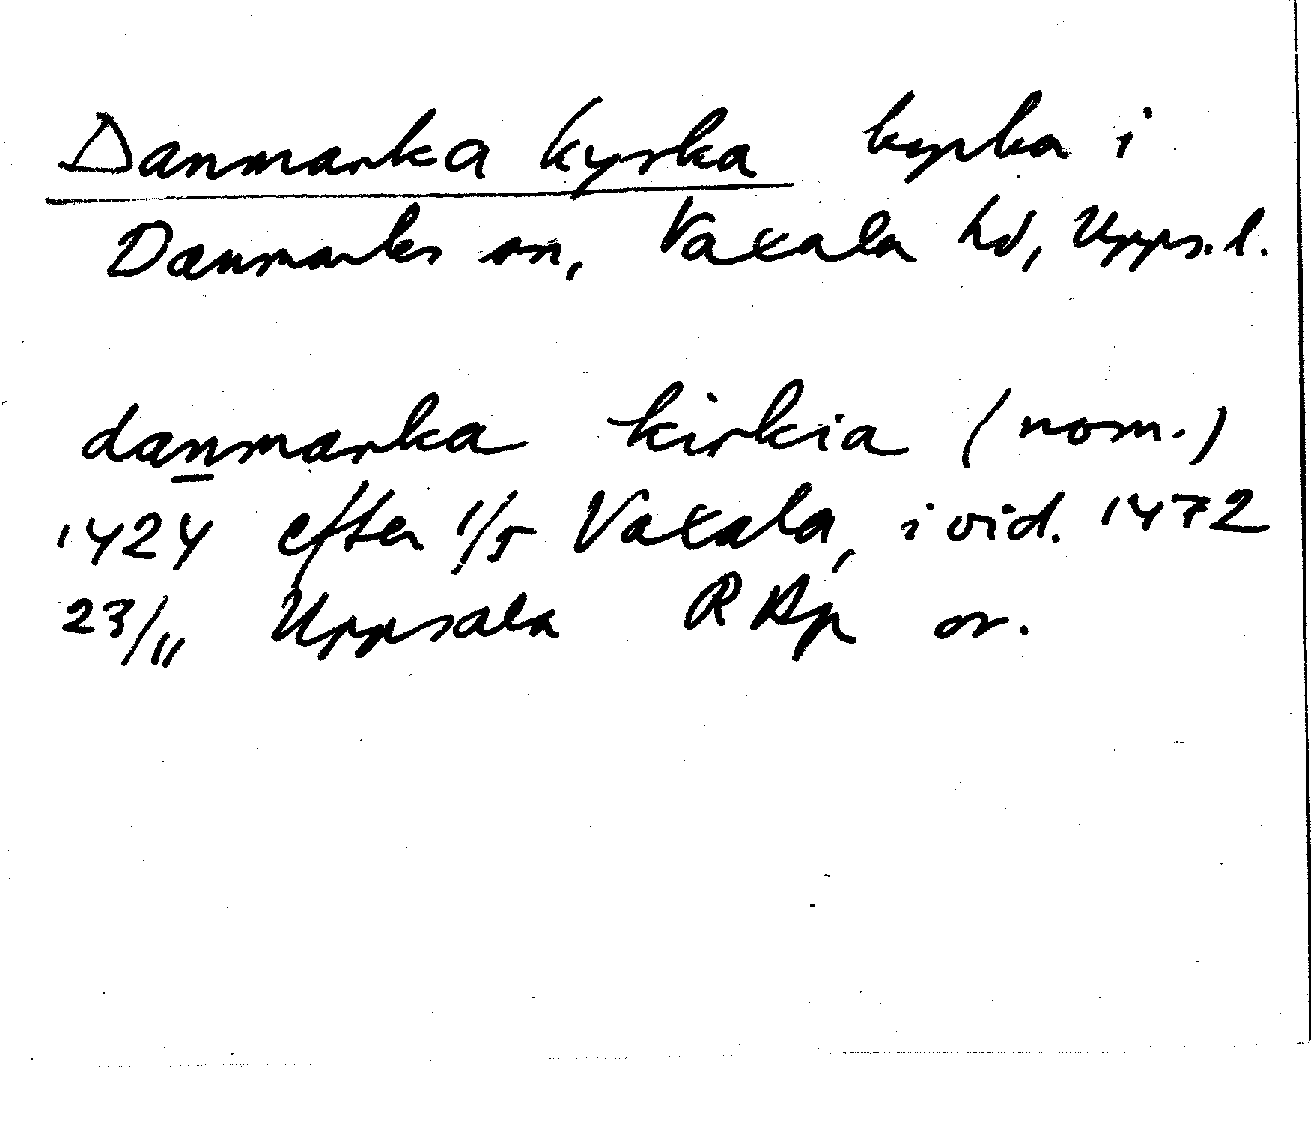 Danmarka kyrka kyrka i
Danmarks sn, Vaxala hd, Upps. l.
danmarka kirkia (nom.)
1424 efter 1/5 Vaxala, i vid. 1472
23/11 Uppsala RAp or.